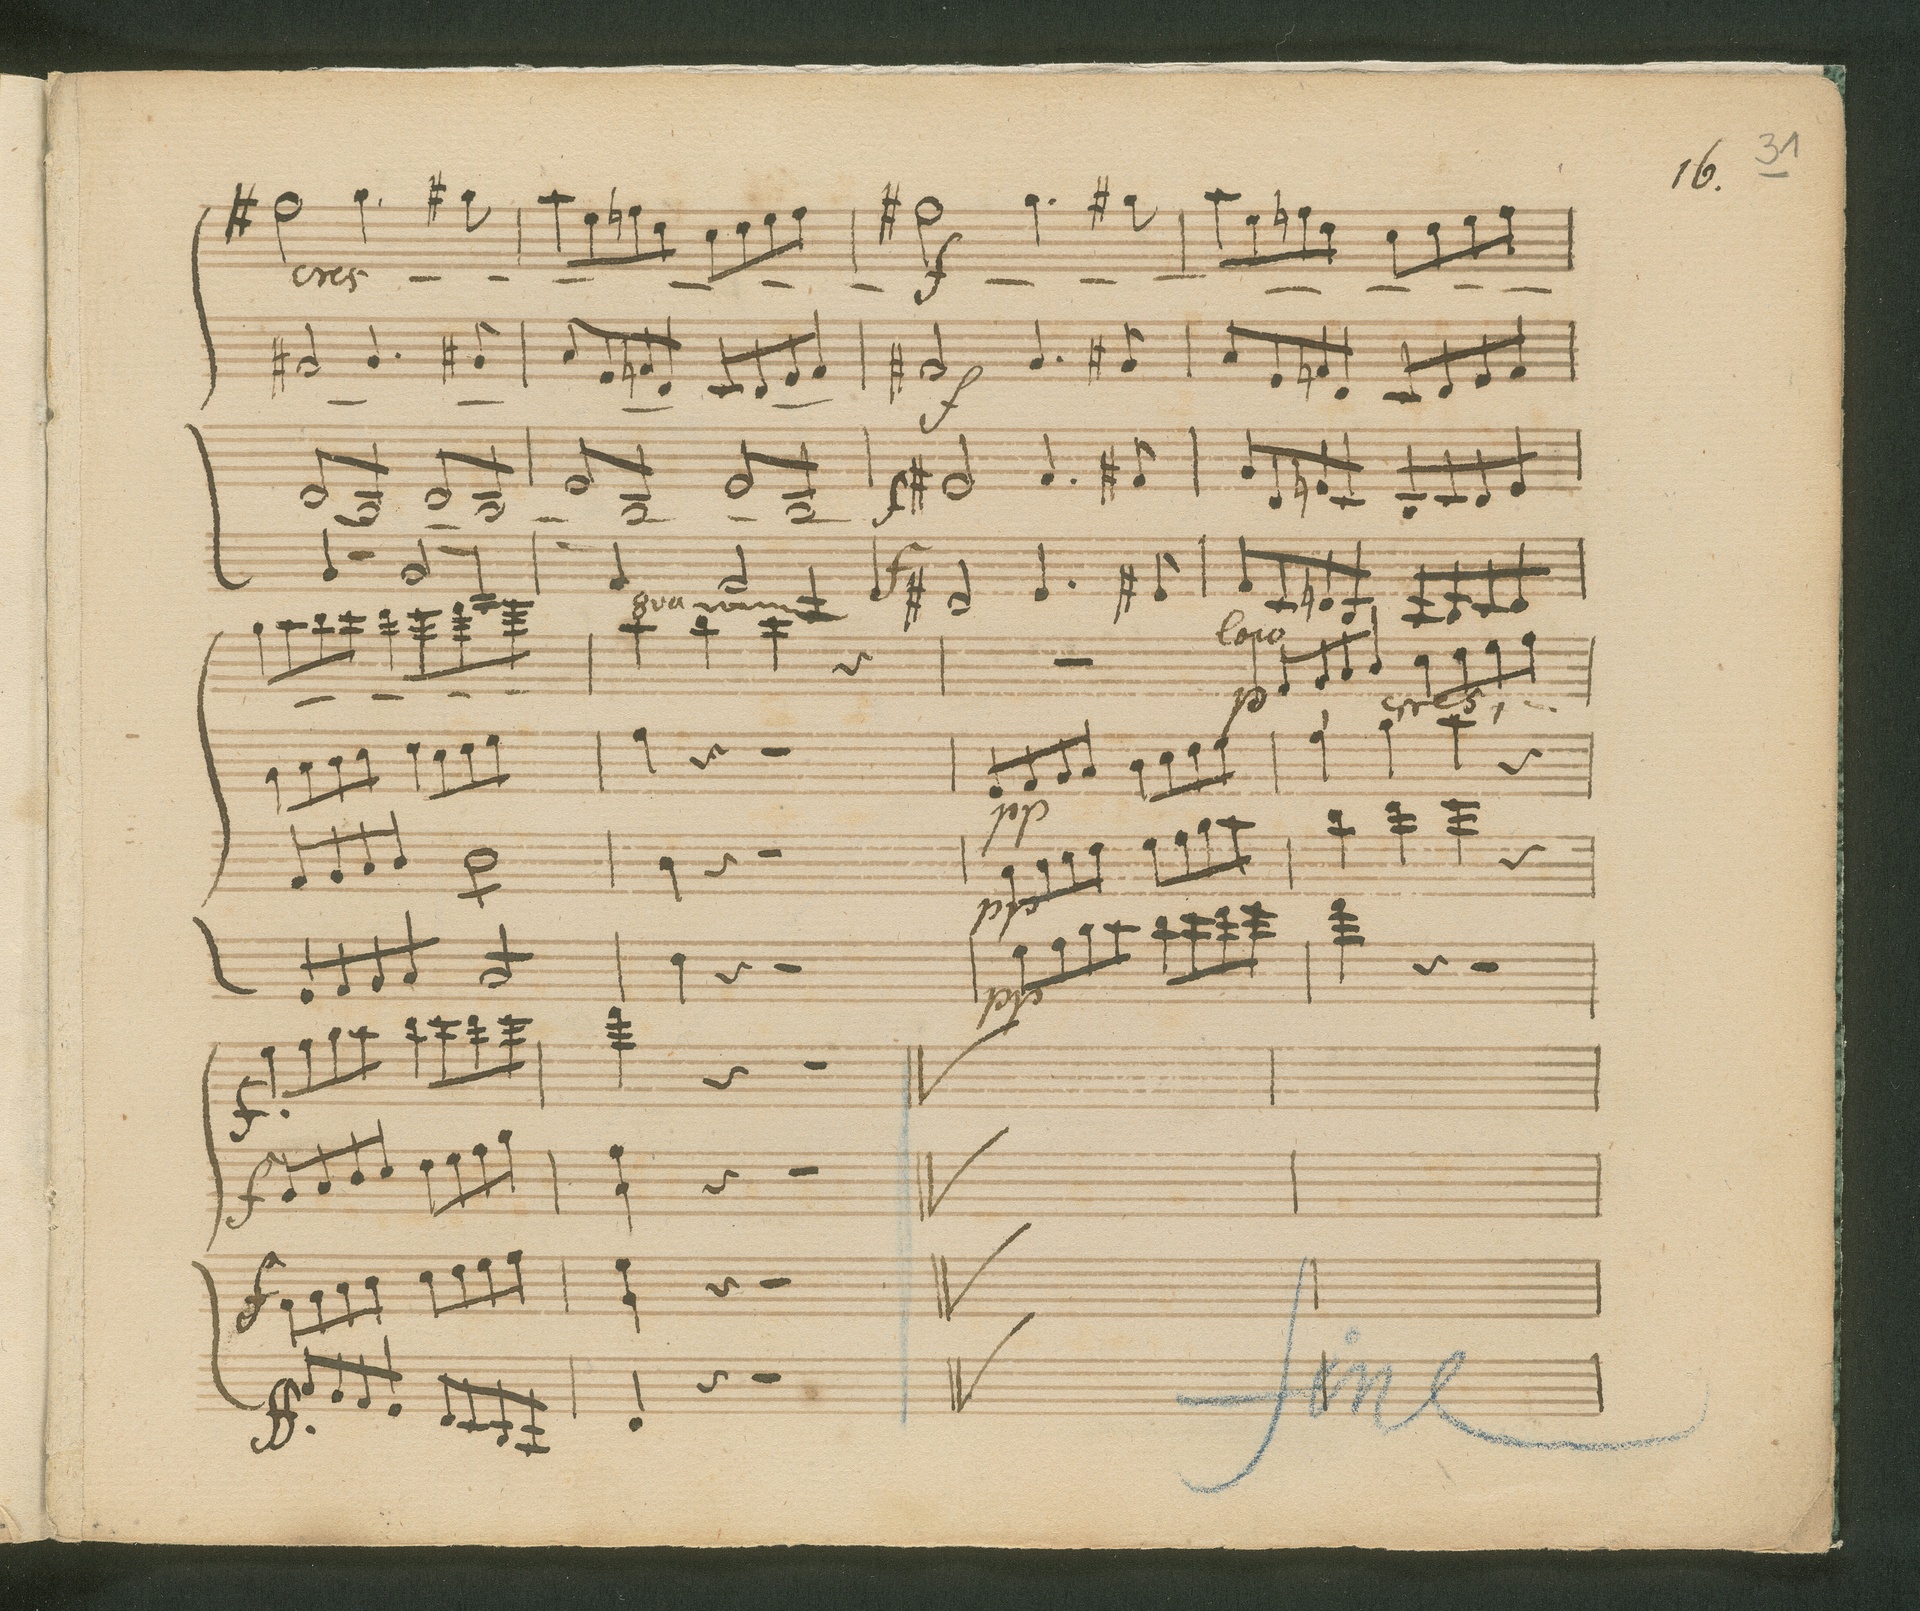 16. 31
cres
f
f
f
f
8va
loco
p cres,
pp
f.
f
f
ff.
fine